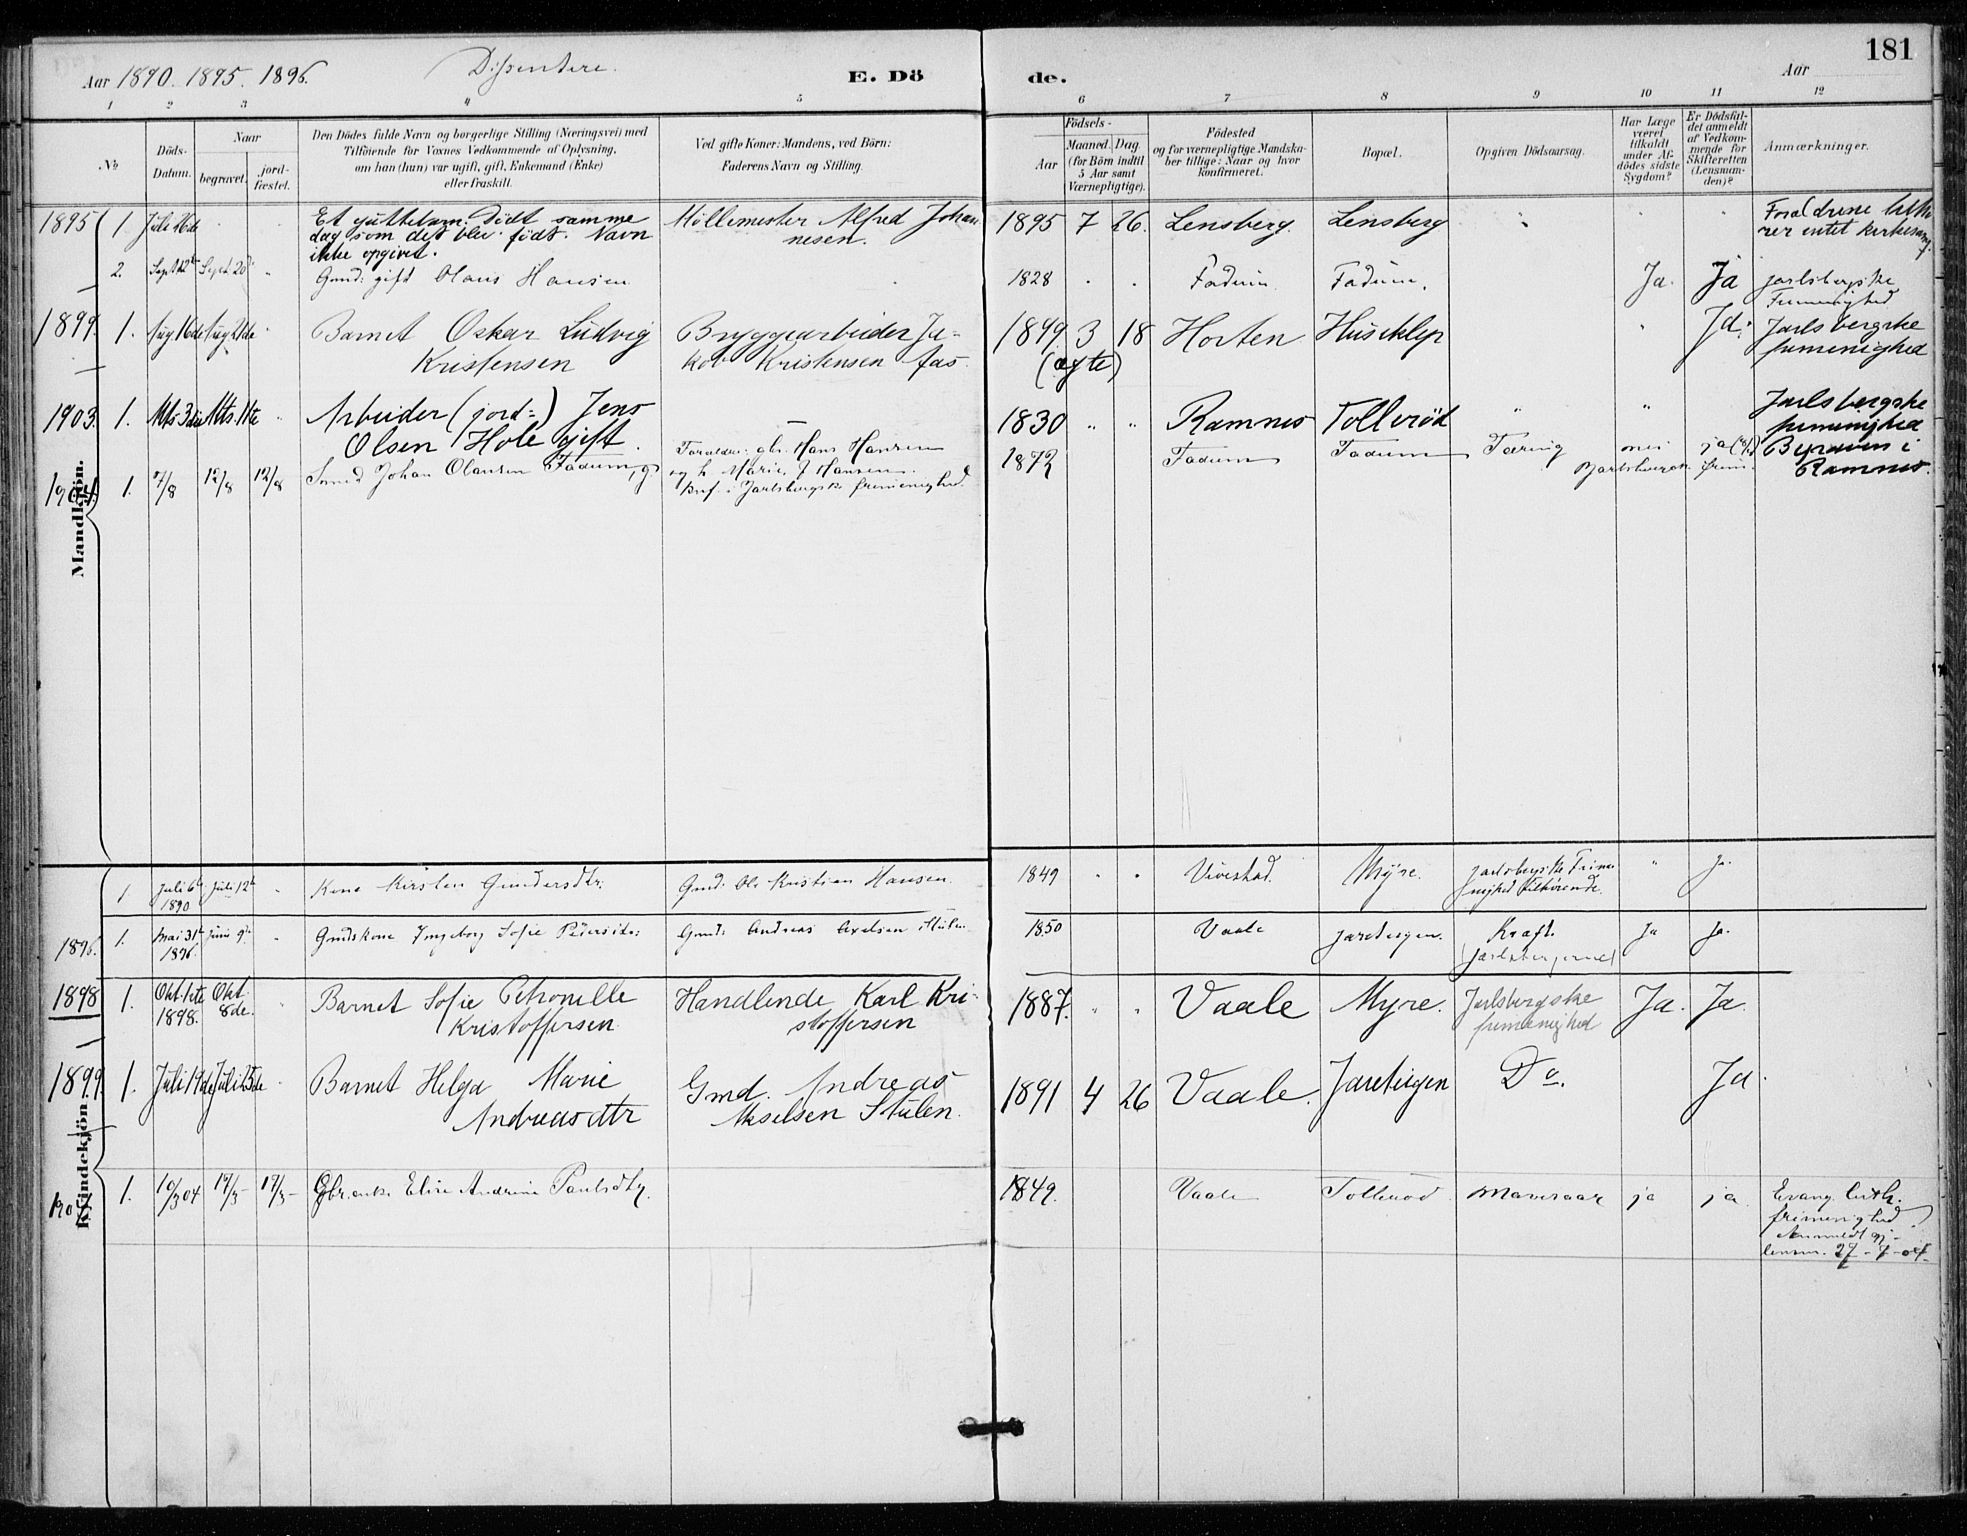 181
Aar 1890. 1895. 1896. Dissentere. E. Dö de. Aar
1 2 3 4 5 6 7 8 9 10 11 12
№
Döds-
Datum.
Naar
begravet.
jord-
fæstet.
Den Dödes fulde Navn og borgerlige Stilling (Næringsvei) med
Tilföiende for Voxnes Vedkommende af Oplysning,
om han (hun) var ugift, gift, Enkemand (Enke)
eller fraskilt.
Ved gifte Koner: Mandens, ved Börn:
Faderens Navn og Stilling.
Födsels-
Aar
Maaned. Dag
(for Börn indtil
5 Aar samt
Værnepligtige).
Födested
og for værnepligtige Mandska-
ber tillige: Naar og hvor
konfirmeret.
Bopæl.
Opgiven Dödsaarsag.
Har Læge
været
tilkaldt
under Af-
dödes sidste
Sygdom?
Er Dödsfal-
det anmeldt
af Vedkom-
mende for
Skifteretten
(Lensman-
den)?
Anmærkninger.
Mandkjön.
1895 1. Juli 26de Et guttebarn. Dödt samme Möllemester Alfred Johan 1895 7 26. Lensberg. Lensberg Foraldrene
dag som det blev födt. Navn nesen. rer intet kirkesamf.
ikke opgivet.
2. Sept 12te Sept 20de Gmd: gift Olaus Hansen 1828 Fadum Fadum. Ja. Ja Jarlsbergske
Frimenighed
1899 1. Aug 16de Aug 21de Barnet Oskar Ludvig Bryggearbeider Ja- 1899. 3 18 Horten Huseklep Ja. Jarlsbergske
Kristensen kob Kristensen Aas (ægte) frimenighed
1903. 1. Mts. 3die Mts. 11te Arbeider (jord=) Jens 1830 Ramnes Tolleröd Jarlsbergske
Olsen Hole gift. frimenighed
1904 1. 7/8 12/8 12/8 Smed Johan Olausen Fadum, g. Foraldre: gbr. Hans Hansen 1872 Fadum Fadum Tæring nei ja Byraasen i
og h. Marie J. Hansen. Ramnes.
Bef. i Jarlsbergske frimenighed.
Kvindekjön.
1. Juli 6te Juli 12te Kone Kirsten Gundersdtr. Gmd. Ole Kristian Hansen 1849 Vivestad. Myre. Jarlsbergske Frime-
1890 nighed tilhörende. Ja.
1896. 1. Mai 31te Juni 9de Gmdskone Ingeborg Sofie Pedersdtr. Gmd: Andreas Axelsen Stulen 1850 Vaale Jareteigen. Kræft. Ja Ja.
1896.
1898 1. Okt 1ste Okt. Barnet Sofie Petronille Handlende Karl Kri- 1887. Vaale Myre. Jarlsbergske Ja. Ja.
1898. 8de. Kristoffersen stoffersen frimenighed
1899. 1. Juli 19de Juli 25de Barnet Helga Marie Gmd. Andreas 1891 4 26 Vaale. Jareteigen Do. Ja.
Andreasdtr Akselsen Stulen.
1904 1. 10/3 04 17/3- 17/3- Gbr.enke Elise Andrine Paulsdtr. 1849. Vaale Tolleröd. Mavesaar ja ja. Evang. luth.
frimenighed
Anmeldt
lensm. 27-7-04.